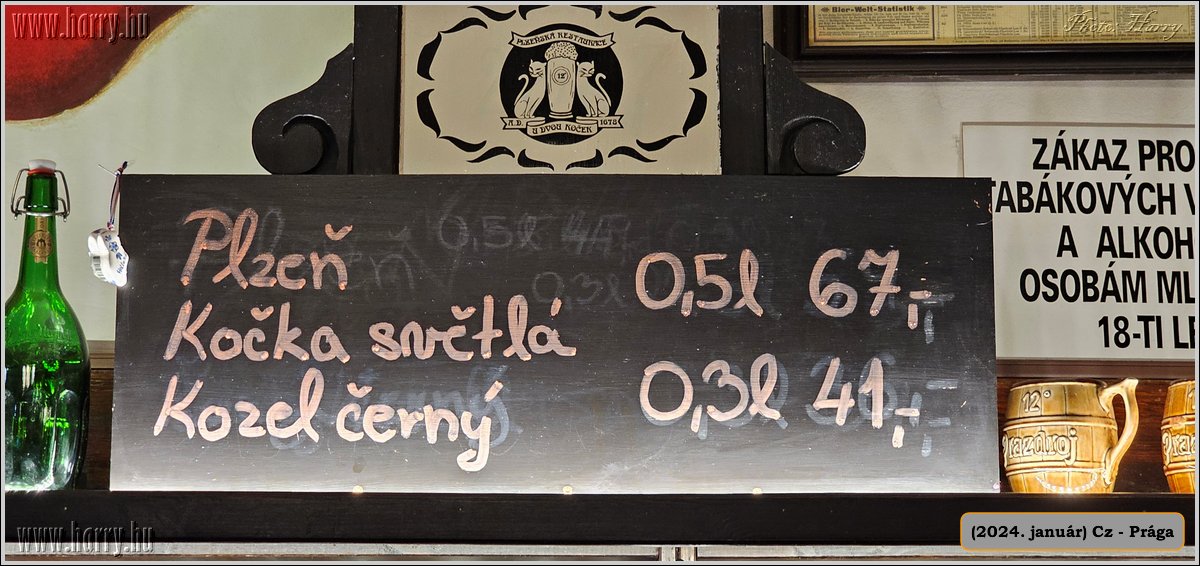 www.harry.hu
PLZEŇSKÁ RESTAURACE
12°
A.D. 1678
U DVOU KOČEK
Bier-Welt-Statistik
Photo: Harry
Plzeň
Kočka světlá
Kozel černý
0,5l 67,-
0,3l 41,-
ZÁKAZ PRO
TABÁKOVÝCH V
A ALKOH
OSOBÁM ML
18-TI LE
12°
Prazdroj
www.harry.hu
(2024. január) Cz - Prága